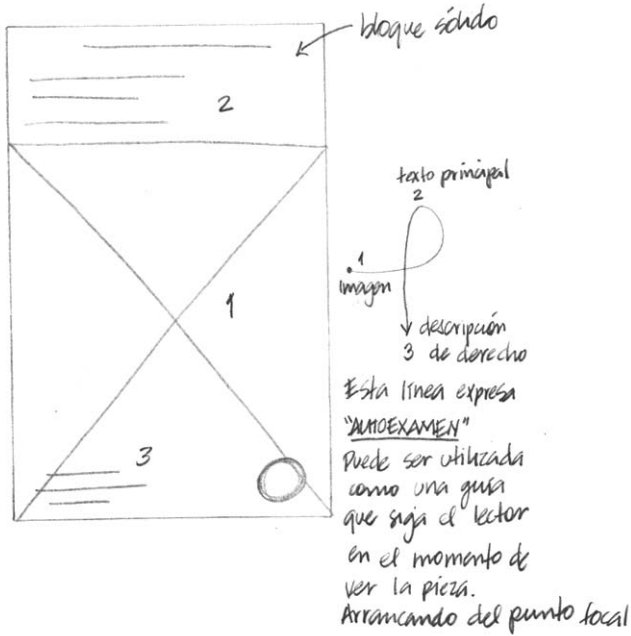 bloque sólido
2
1
3
texto principal
2
1
imagen
descripción
3 de derecho
Esta línea expresa
"AUTOEXAMEN"
Puede ser utilizada
como una guía
que siga el lector
en el momento de
ver la pieza.
Arrancando del punto focal